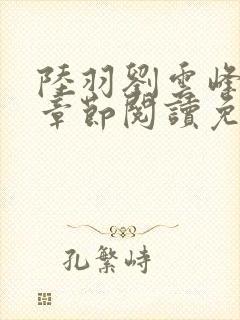 陸羽劉雲峰
章節閱讀免
孔繁峙